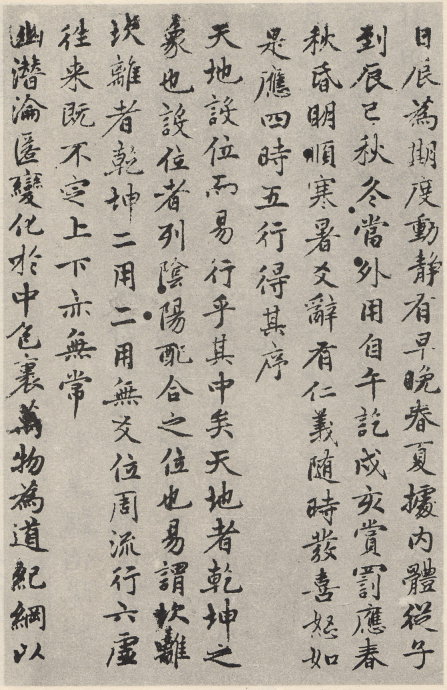 日辰為期度動靜有早晚春夏據內體從子
到辰巳秋冬當外用自午訖戌亥賞罰應春
秋昏明順寒暑爻辭有仁義隨時發喜怒如
是應四時五行得其序
天地設位而易行乎其中矣天地者乾坤之
象也設位者列陰陽配合之位也易謂坎離
坎離者乾坤二用二用無爻位周流行六虛
往来既不定上下亦無常
幽潛淪匿變化於中包裹萬物為道紀綱以